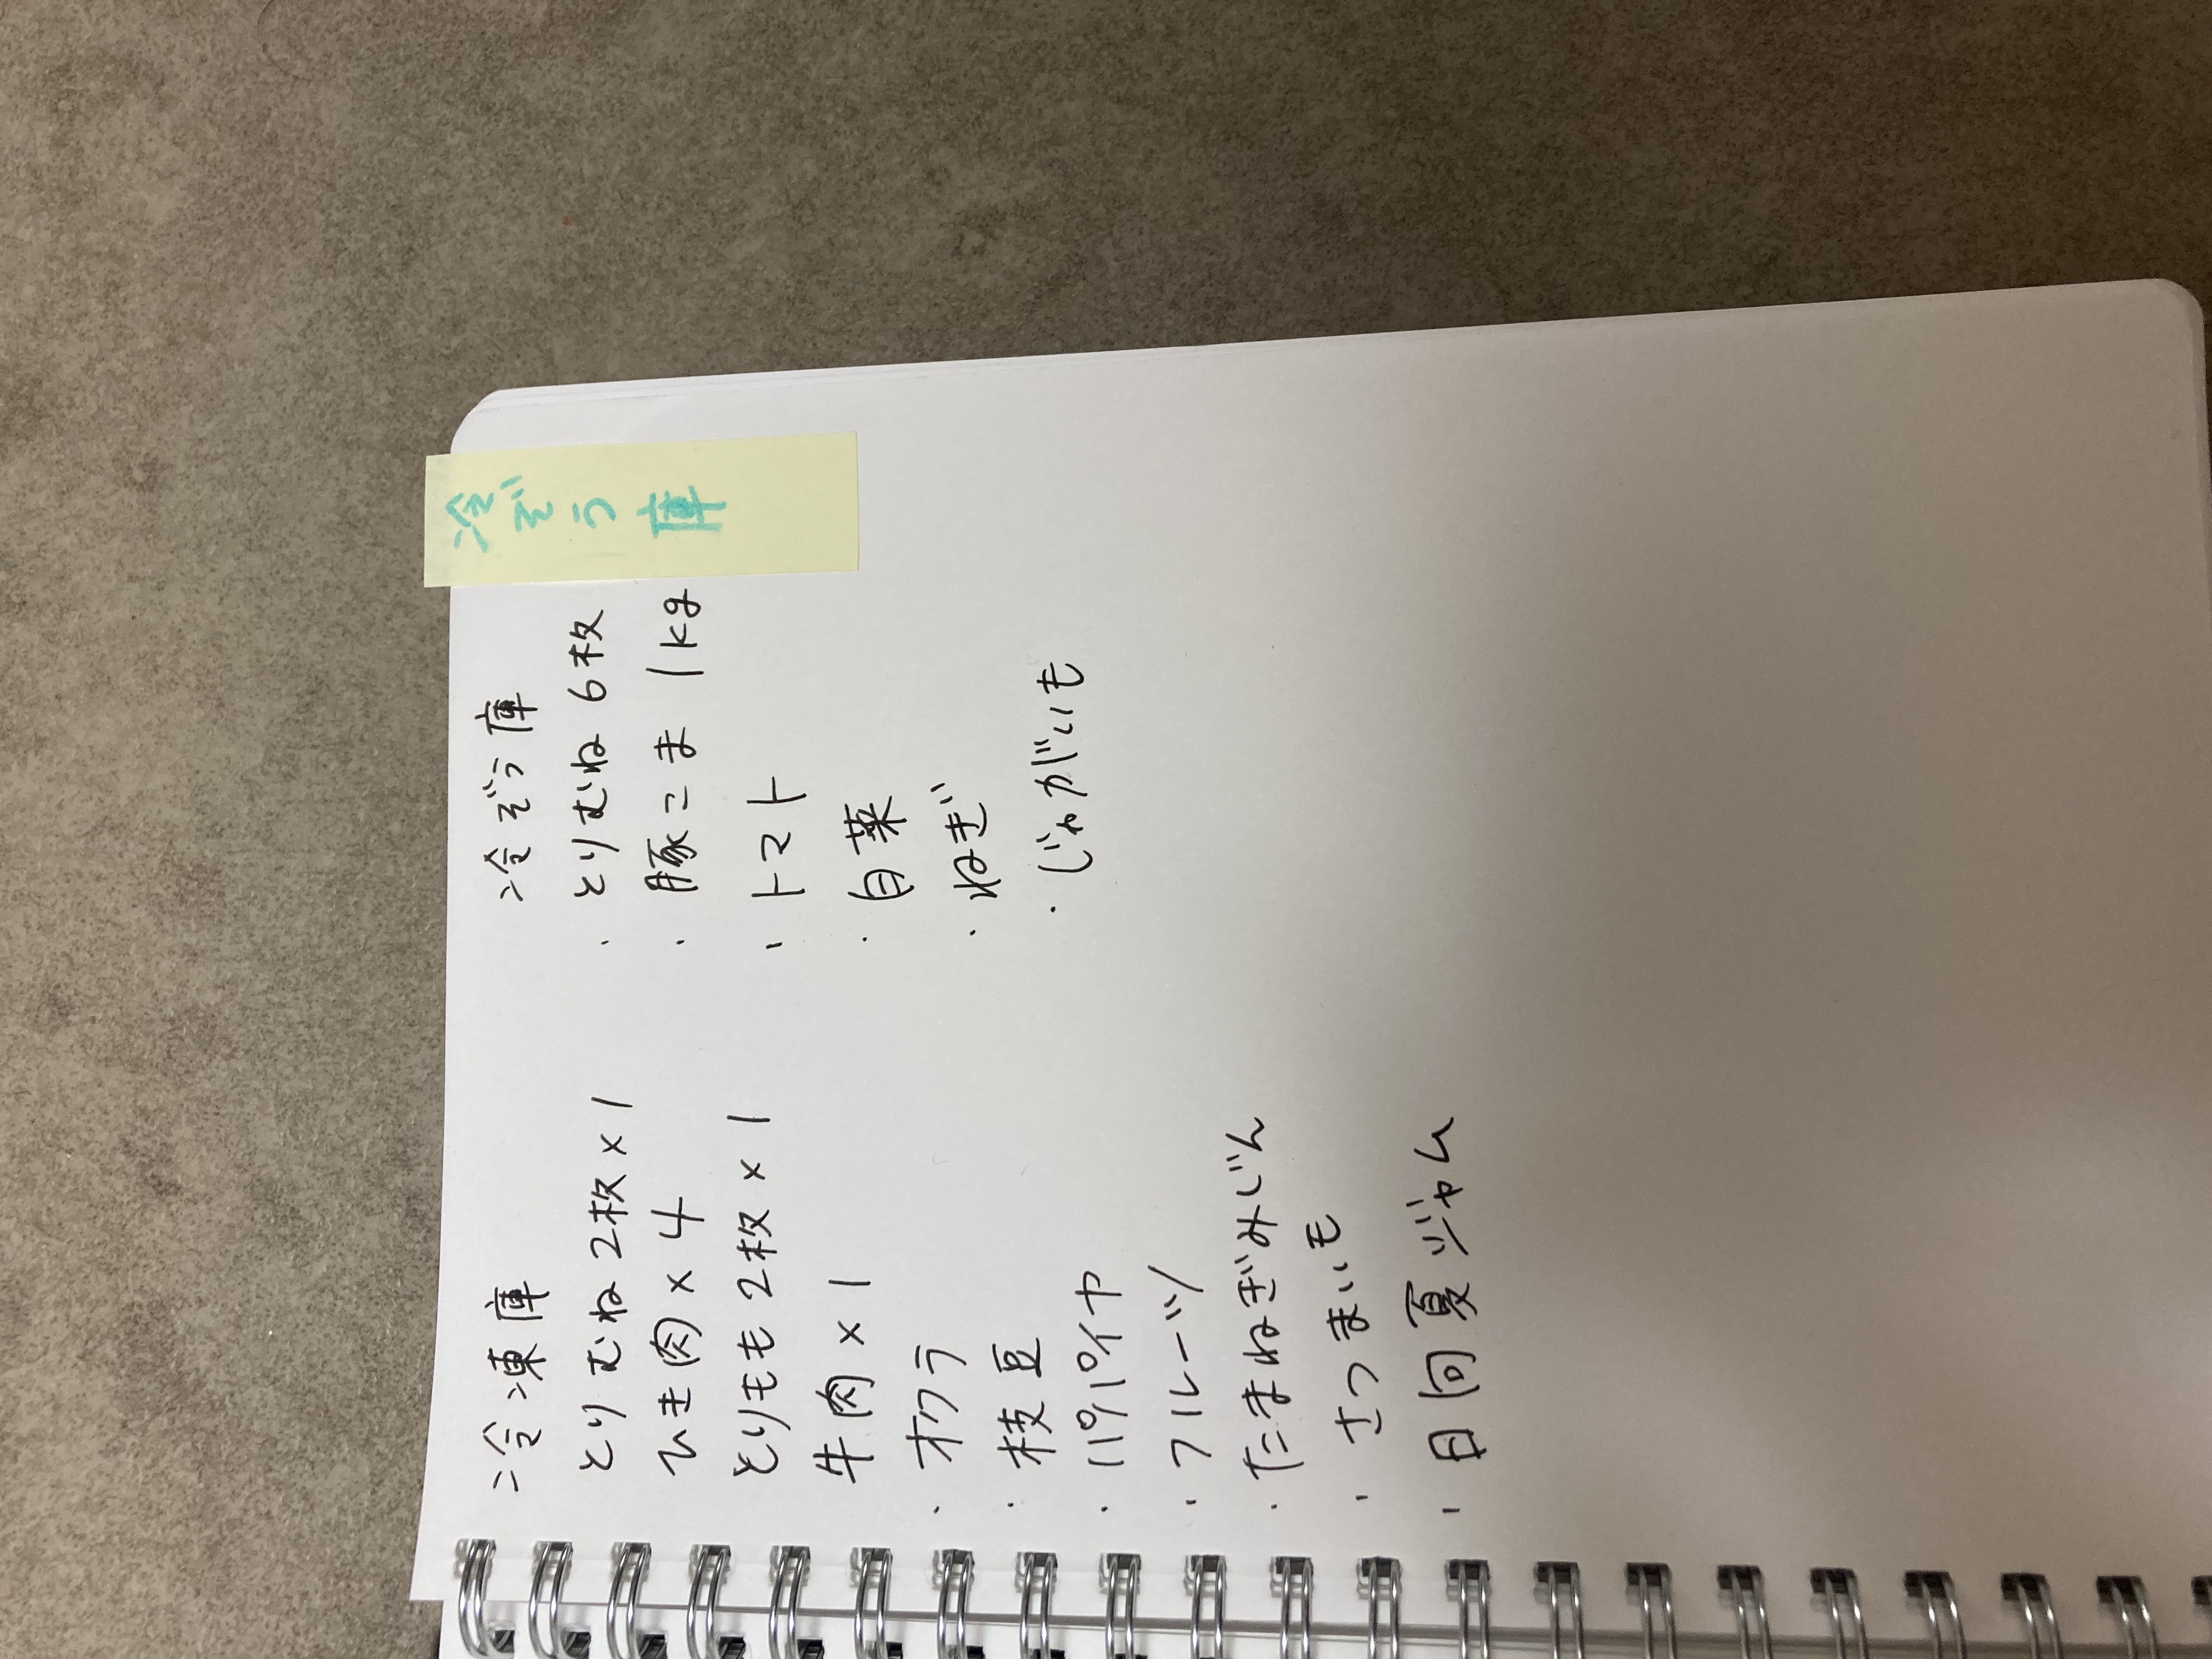 冷ぞう庫
冷凍庫
とりむね2枚×1
ひき肉×4
とりもも2枚×1
牛肉×1
・オクラ
・枝豆
・パパイヤ
・フルーツ
・たまねぎみじん
・さつまいも
・日向夏ジャム
冷ぞう庫
・とりむね6枚
・豚こま 1kg
・トマト
・白菜
・ねぎ
・じゃがいも